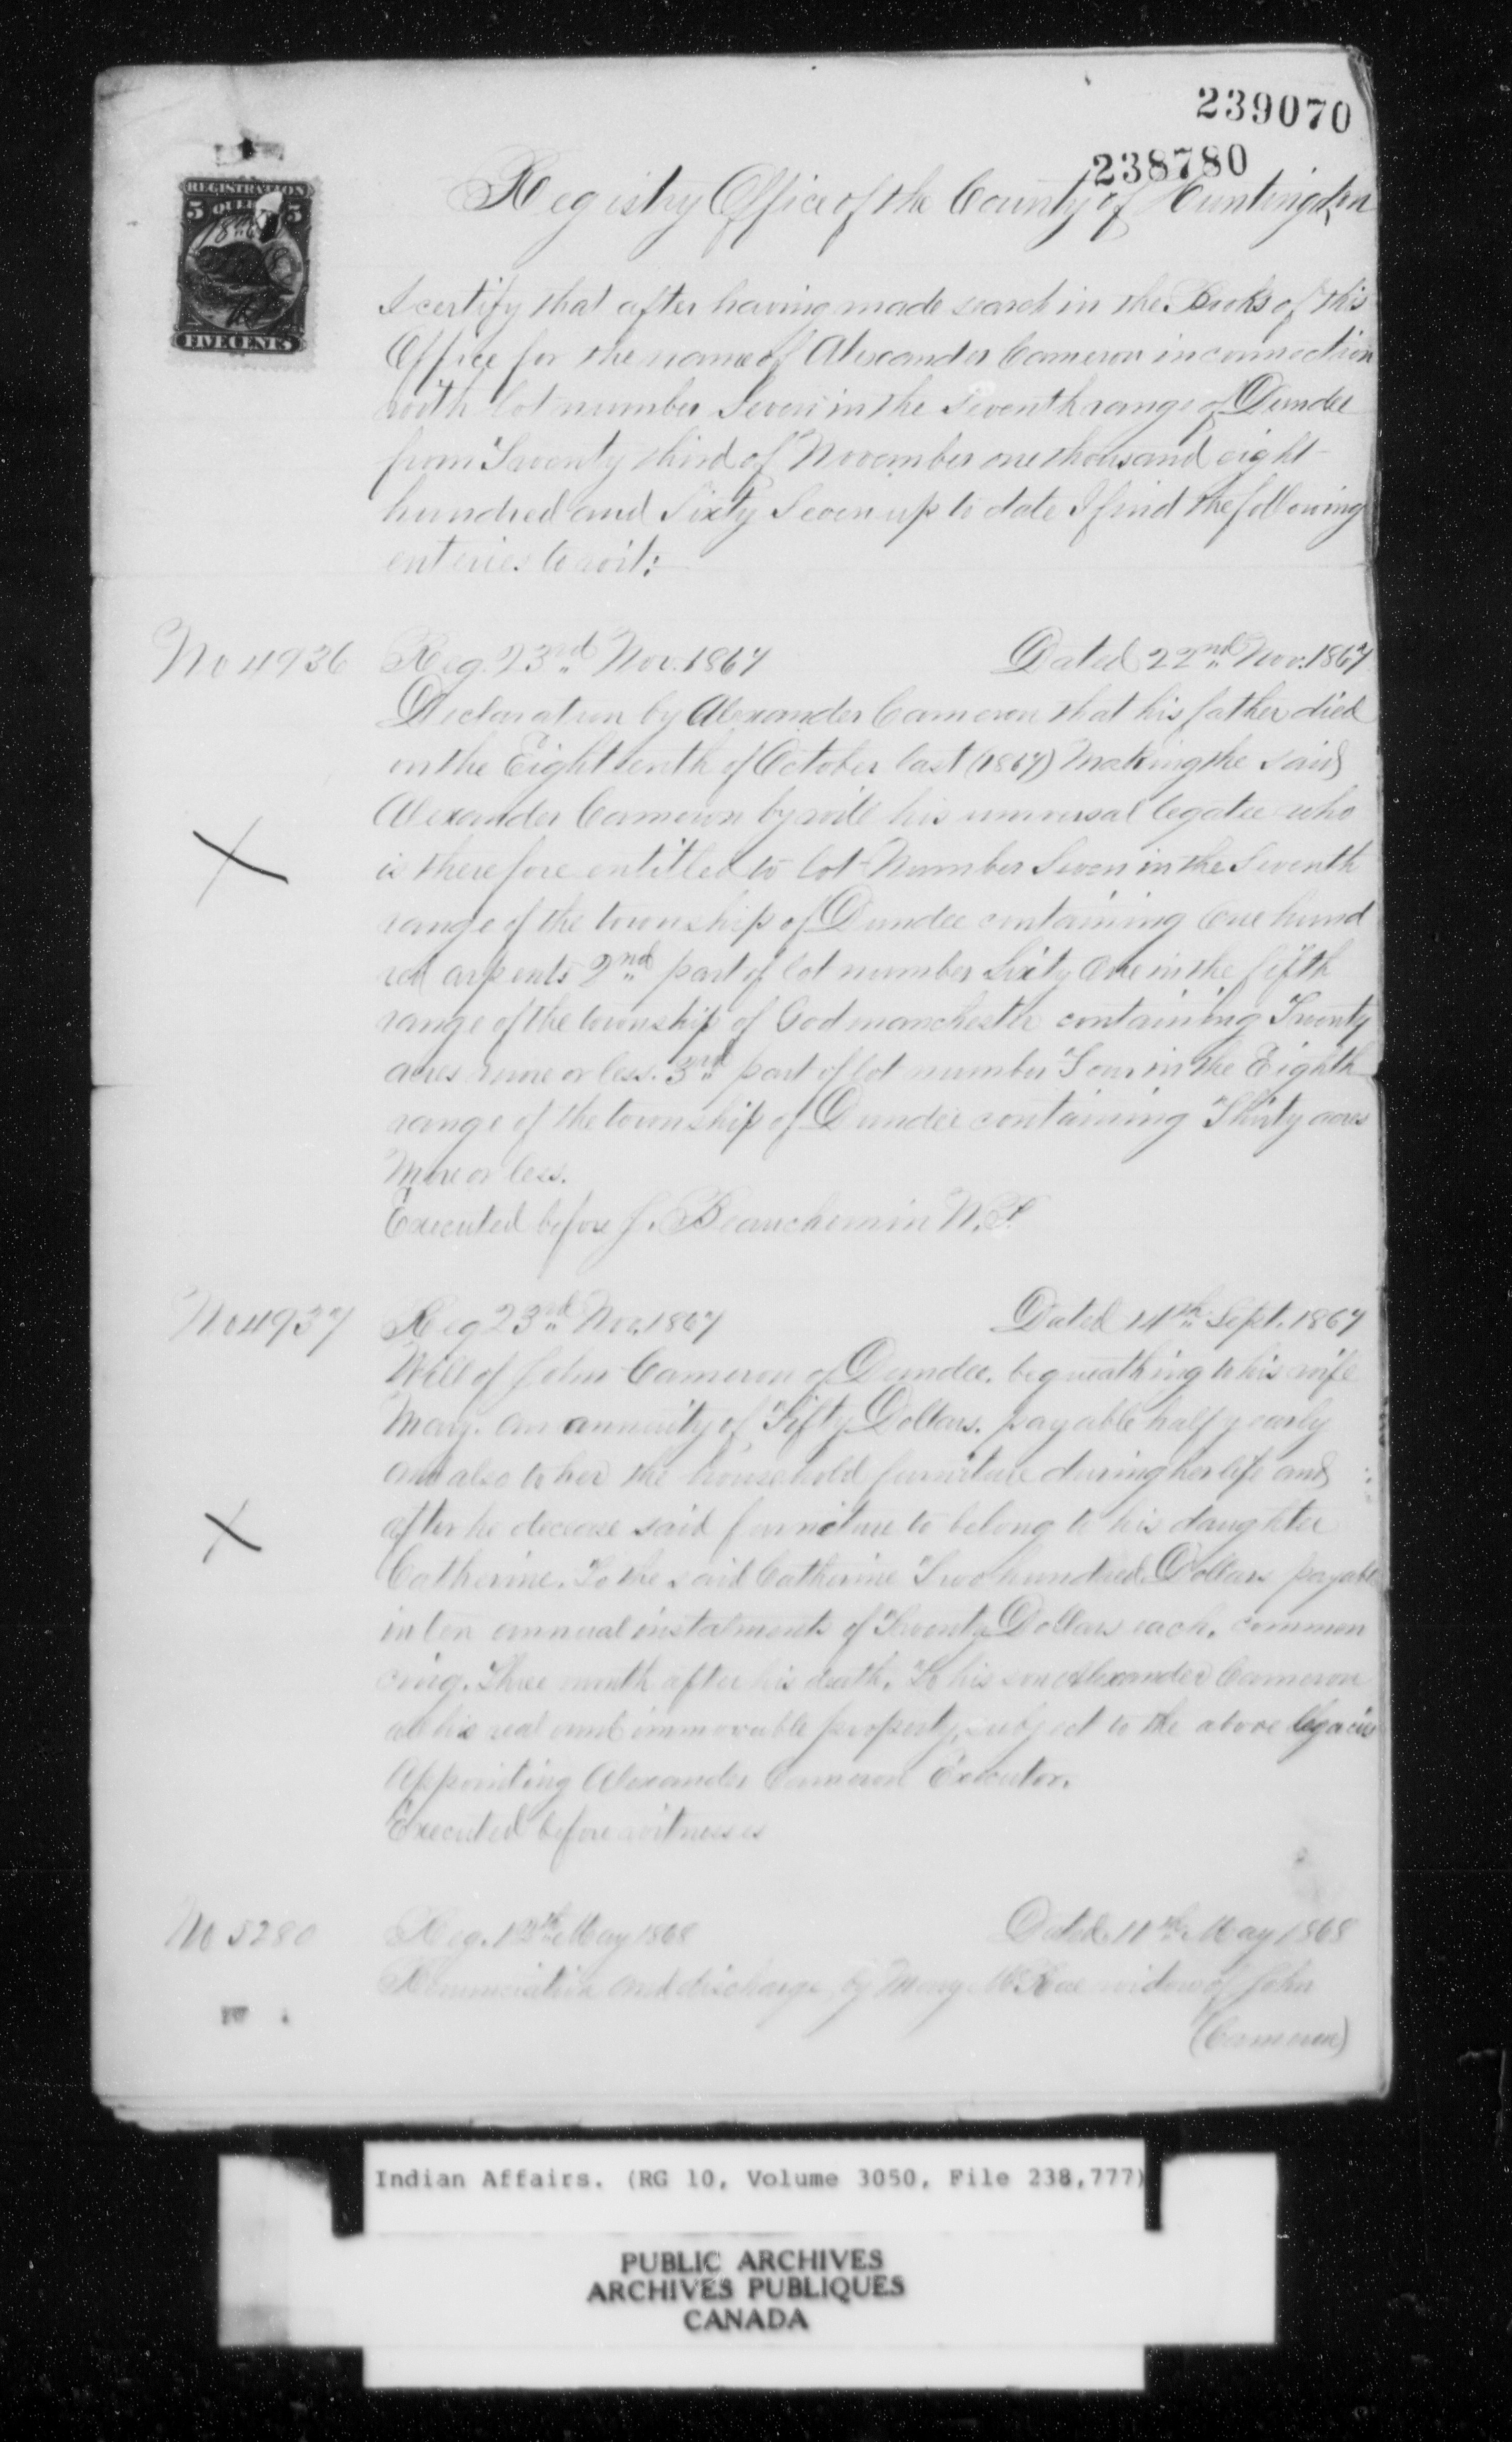 239070
238780
REGISTRATION
5 5
FIVE CENTS
Registry Office of the County of Huntingdon
I certify that after having made search in the Books of this
Office for the name of Alexander Cameron in connection
with lot number Seven in the Seventh range of Dundee
from Twenty third of November one thousand eight
hundred and Sixty Seven up to date I find the following
enteries to wit:
No 4936 Reg. 23rd Nov. 1867 Dated 22nd Nov. 1867
Declaration by Alexander Cameron that his father died
on the Eighteenth of October last (1867) Making the said
Alexander Cameron by will his universal legatee who
is therefore entitled to lot Number Seven in the Seventh
range of the township of Dundee containing One hund
red arpents 2nd part of lot number Sixty One in the fifth
range of the township of Godmanchester containing Twenty
acres more or less. 3rd part of lot number Four in the Eighth
range of the township of Dundee containing Thirty acres
More or less.
Executed before J. Beauchemin N.P.
No 4937 Reg 23rd Nov. 1867 Dated 14th Sept. 1867
Will of John Cameron of Dundee. bequeathing to his wife
Mary. An annuity of Fifty Dollars. payable half yearly
and also to her the household furniture during her life and
after he decease said furniture to belong to his daughter
Catherine. To the said Catherine Two hundred Dollars payable
in ten annual instalments of Twenty Dollars each. commen
cing. Three month after his death. To his son Alexander Cameron
all his real and immovable property subject to the above legacies
Appointing Alexander Cameron Executor.
Executed before witnesses
No 5280 Reg. May 1868 Dated 11th May 1868
Renunciation and discharge by Mary McRae widow of John
(Cameron)
Indian Affairs. (RG 10, Volume 3050, File 238,777)
PUBLIC ARCHIVES
ARCHIVES PUBLIQUES
CANADA